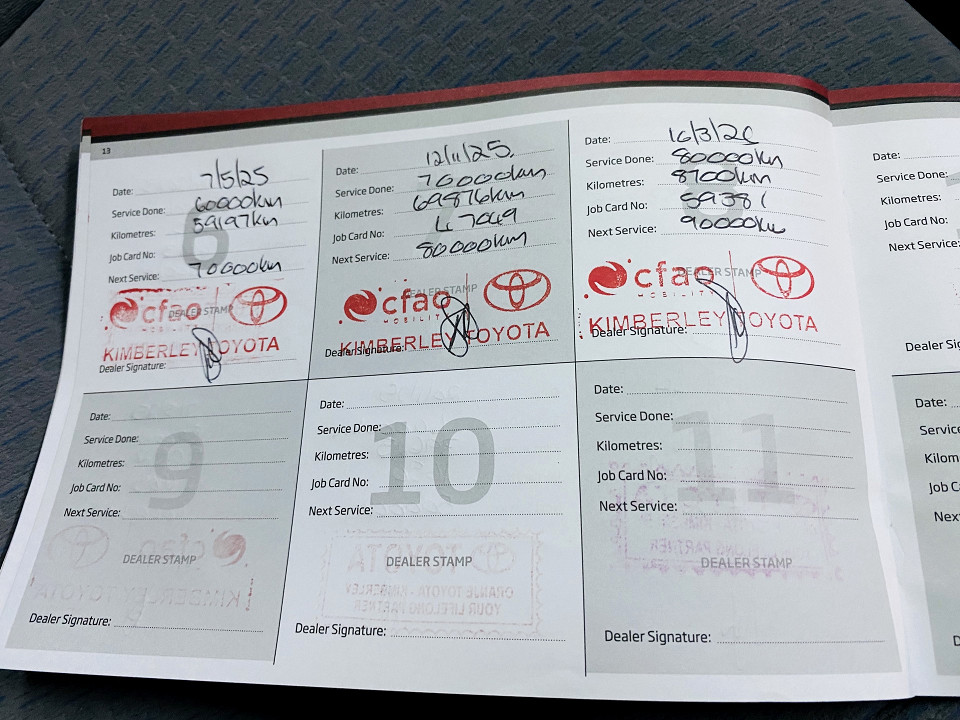 13
Date: 7/5/25
Service Done: 60000km
Kilometres: 59197km
Job Card No:
Next Service: 70000km
6
DEALER STAMP
cfao
MOBILITY
KIMBERLEY TOYOTA
Dealer Signature:
Date: 12/11/25.
Service Done: 70000km
Kilometres: 69876km
Job Card No: 47949
Next Service: 80000km
DEALER STAMP
cfao
MOBILITY
KIMBERLEY TOYOTA
Dealer Signature:
Date: 16/3/26
Service Done: 80000km
Kilometres: 8700km
Job Card No: 59381
Next Service: 90000km
DEALER STAMP
cfao
MOBILITY
KIMBERLEY TOYOTA
Dealer Signature:
Date:
Service Done:
Kilometres:
Job Card No:
Next Service:
Dealer Si
Date:
Service Done:
Kilometres:
Job Card No:
Next Service:
9
DEALER STAMP
Dealer Signature:
Date:
Service Done:
Kilometres:
Job Card No:
Next Service:
10
DEALER STAMP
Dealer Signature:
Date:
Service Done:
Kilometres:
Job Card No:
Next Service:
11
DEALER STAMP
Dealer Signature:
Date:
Service
Kilom
Job C
Nex
D